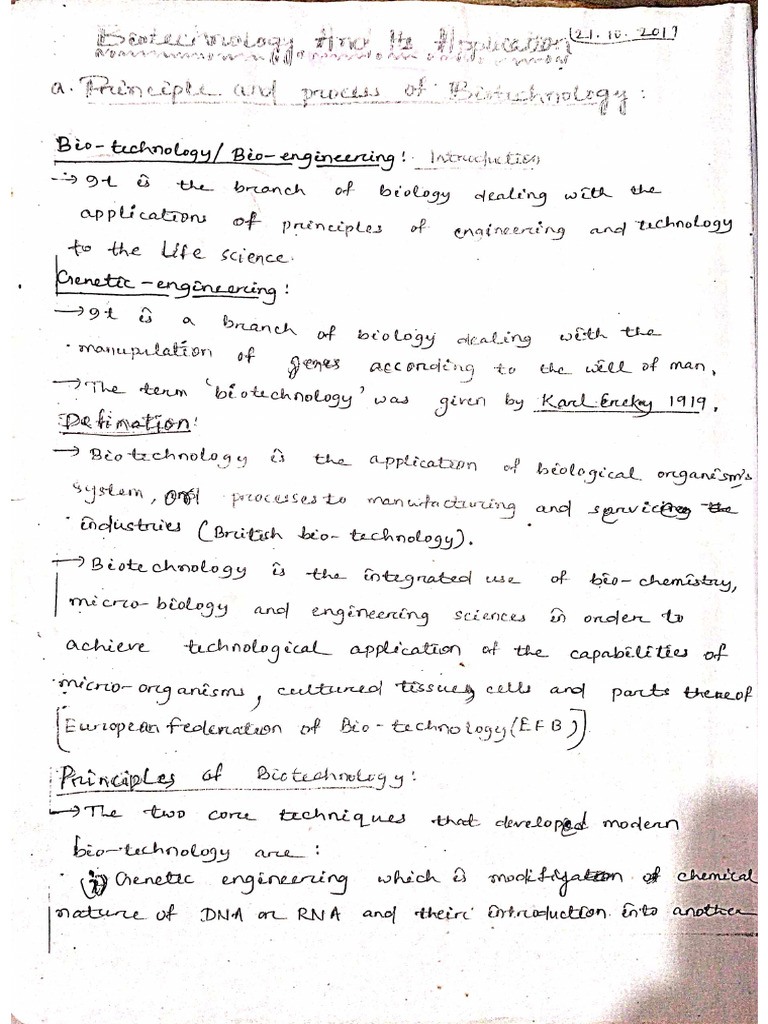 Biotechnology And Its Application 21.10.2017
a. Principle and process of Biotechnology:
Bio-technology/ Bio-engineering: Introduction
→ It is the branch of biology dealing with the
applications of principles of engineering and technology
to the Life science.
Genetic-engineering:
→ It is a branch of biology dealing with the
manupulation of genes according to the will of man.
→ The term 'biotechnology' was given by Karl Ereky 1919.
Defination:
→ Biotechnology is the application of biological organism's
system, or processes to manufacturing and servicing the
industries (British bio-technology).
→ Biotechnology is the integrated use of bio-chemistry,
micro-biology and engineering sciences in order to
achieve technological application of the capabilities of
micro-organisms, cultured tissues, cells and parts thereof
[European Federation of Bio-technology (EFB)].
Principles of Biotechnology:
→ The two core techniques that developed modern
bio-technology are:
i) Genetic engineering which is modifyation of chemical
nature of DNA or RNA and their introduction into another